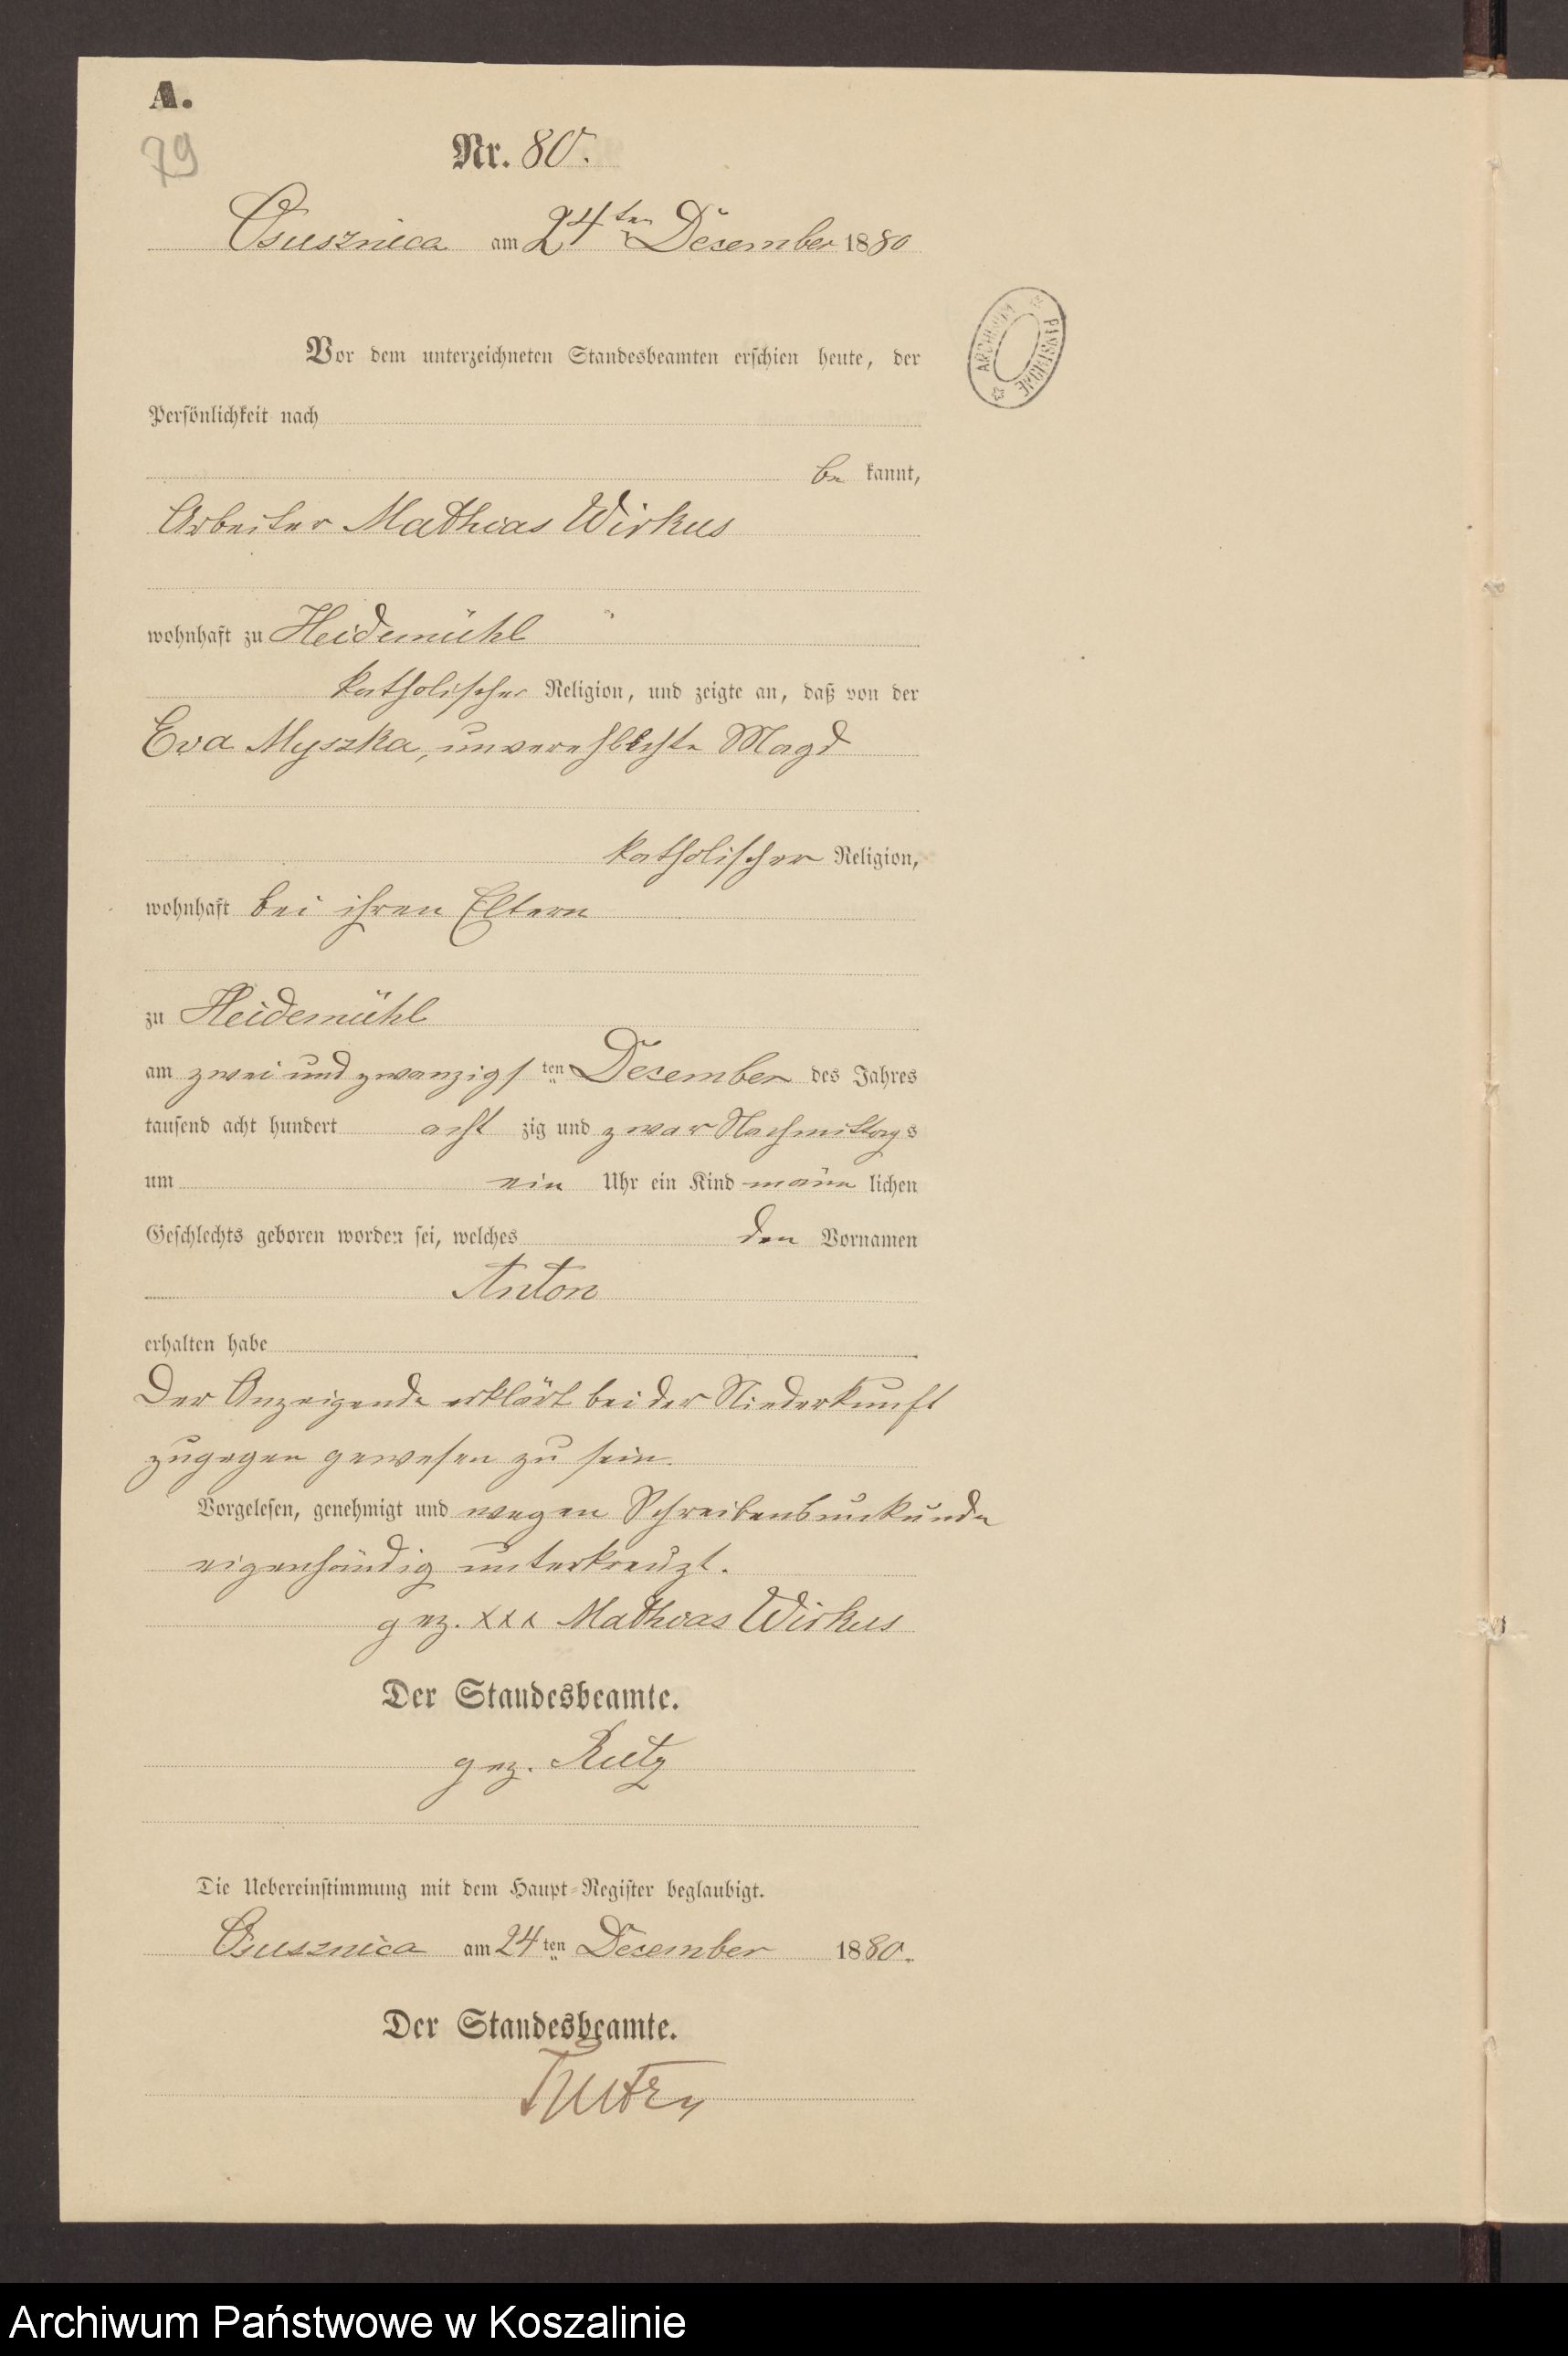 A.
79
Nr. 80.
Osusznica am 24ten Dezember 1880
ARCHIWUM PAŃSTWOWE
Vor dem unterzeichneten Standesbeamten erschien heute, der
Persönlichkeit nach
be kannt,
Arbeiter Mathias Wirkus
wohnhaft zu Heidemühl
katholischer Religion, und zeigte an, daß von der
Eva Myszka, unverehlichte Magd
katholischer Religion,
wohnhaft bei ihren Eltern
zu Heidemühl
am zwei und zwanzigs ten Dezember des Jahres
tausend acht hundert acht zig und zwar Nachmittags
um ein Uhr ein Kind männ lichen
Geschlechts geboren worden sei, welches den Vornamen
Anton
erhalten habe
Der Anzeigende erklärt bei der Niederkunft
zugegen gewesen zu sein.
Vorgelesen, genehmigt und wegen Schreibensunkunde
eigenhändig unterkreuzt.
gez. xxx Mathias Wirkus
Der Standesbeamte.
gez. Rutz
Die Uebereinstimmung mit dem Haupt-Register beglaubigt.
Osusznica am 24ten Dezember 1880.
Der Standesbeamte.
Rutz
Archiwum Państwowe w Koszalinie